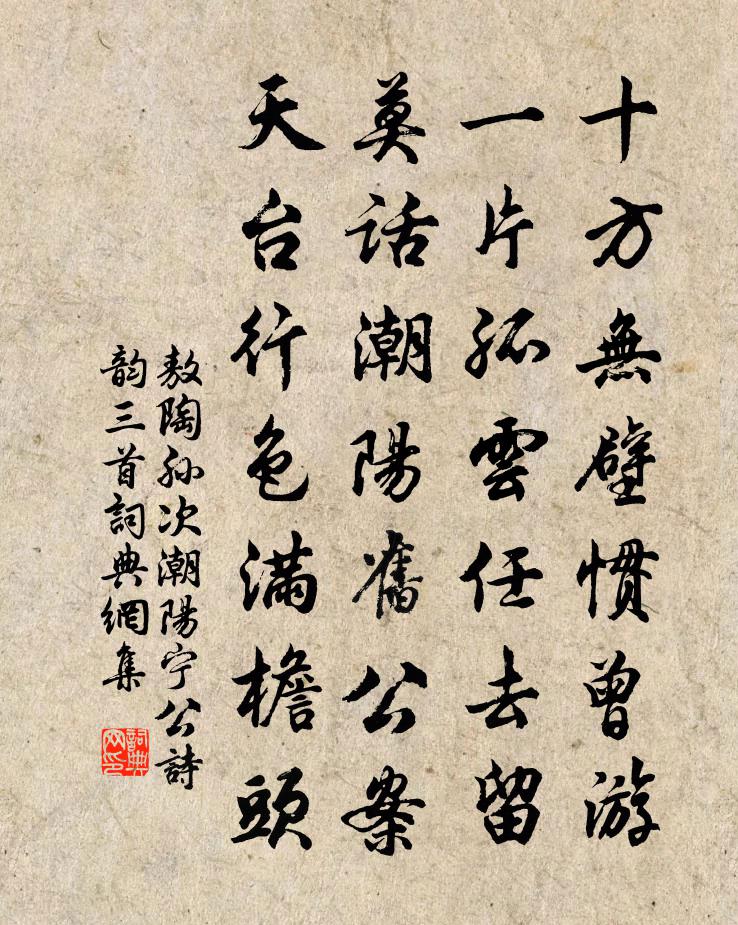 十方無壁慣曾游
一片孤雲任去留
莫話潮陽舊公案
天台行色滿檐頭
敖陶孫次潮陽宁公詩
韵三首詞典網集
詞典
网印